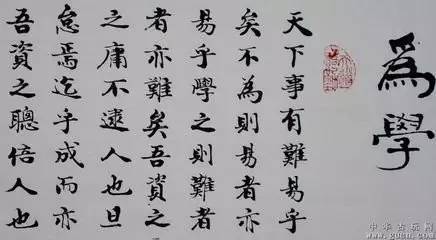 為學
天下事有難易乎
矣不為則易者亦
易乎學之則難者
者亦難矣吾資之
之庸不逮人也旦
怠焉迄乎成而亦
吾資之聰倍人也
中华古玩网
www.gucn.com